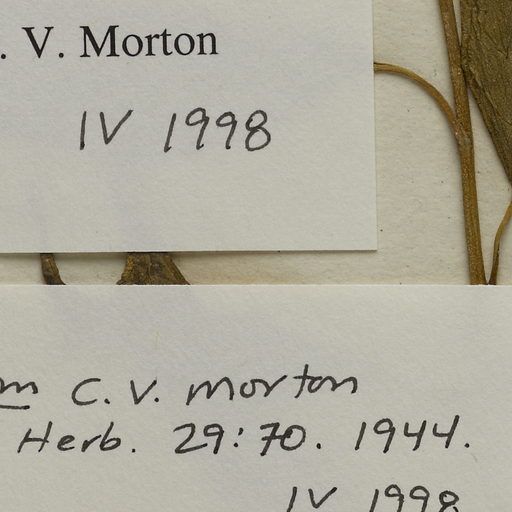 . V. Morton
IV 1998
m C. V. Morton
Herb. 29:70. 1944.
IV 1998